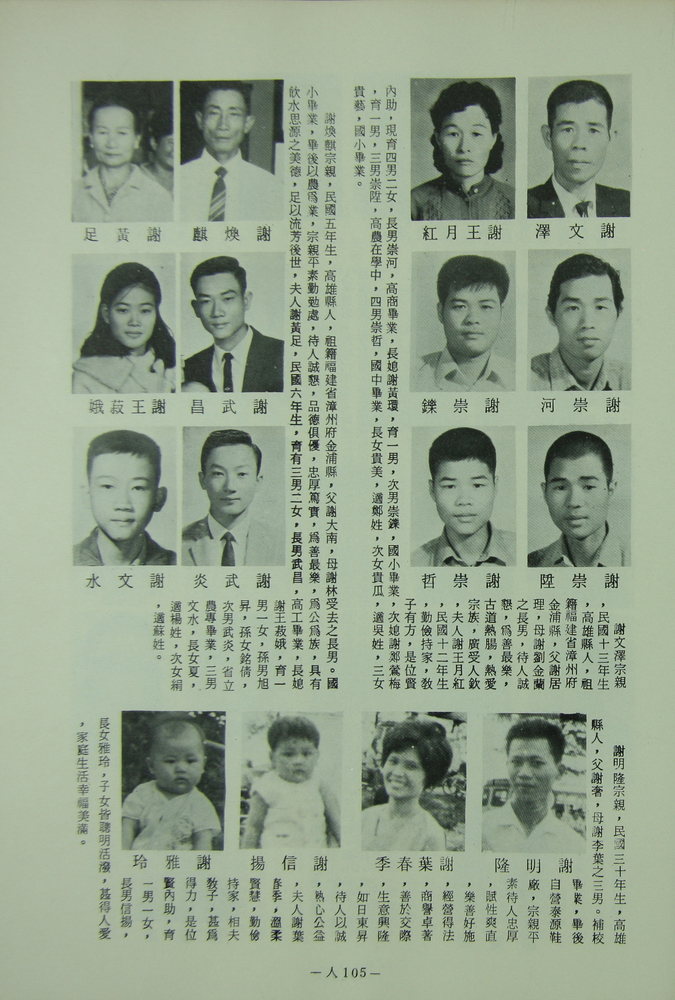 謝文澤
謝王月紅
謝崇河
謝崇鑠
謝崇陞
謝崇哲
謝文澤宗親
，民國十三年生
，高雄縣人，祖
籍福建省漳州府
金浦縣，父謝居
理，母謝劉金蘭
之長男，待人誠
懇，爲善最樂，
古道熱腸，熱愛
宗族，廣受人欽
，夫人謝王月紅
，民國十二年生
，勤儉持家，敎
子有方，是位賢
內助，現育四男二女，長男崇河，高商畢業，長媳謝黃環，育一男，次男崇鑠，國小畢業，次媳謝鄭鶯梅
，育一男，三男崇陞，高農在學中，四男崇哲，國中畢業，長女貴美，適鄭姓，次女貴瓜，適吳姓，三女
貴藝，國小畢業。
謝煥麒
謝黃足
謝武昌
謝王菽娥
謝武炎
謝文水
謝煥麒宗親，民國五年生，高雄縣人，祖籍福建省漳州府金浦縣，父謝大南，母謝林受去之長男。國
小畢業，畢後以農爲業，宗親平素勤勉處，待人誠懇，品德俱優，忠厚篤實，爲善最樂，爲公爲族，具有
飲水思源之美德，足以流芳後世，夫人謝黃足，民國六年生，育有三男二女，長男武昌，高工畢業，長媳
謝王菽娥，育一
男一女，孫男旭
昇，孫女銘倩，
次男武炎，省立
農專畢業，三男
文水，長女夏，
適楊姓，次女絹
，適蘇姓。
謝明隆
謝葉春季
謝信揚
謝雅玲
謝明隆宗親，民國三十年生，高雄
縣人，父謝奢，母謝李葉之三男。補校
畢業，畢後
自營泰源鞋
廠，宗親平
素待人忠厚
，賦性爽直
，樂善好施
，經營得法
，商譽卓著
，善於交際
，生意興隆
，如日東昇
，待人以誠
，熱心公益
，夫人謝葉
春季，溫柔
賢慧，勤儉
持家，相夫
敎子，甚爲
得力，是位
賢內助，育
一男一女，
長男信揚，
長女雅玲，子女皆聰明活潑，甚得人愛
，家庭生活幸福美滿。
—人105—